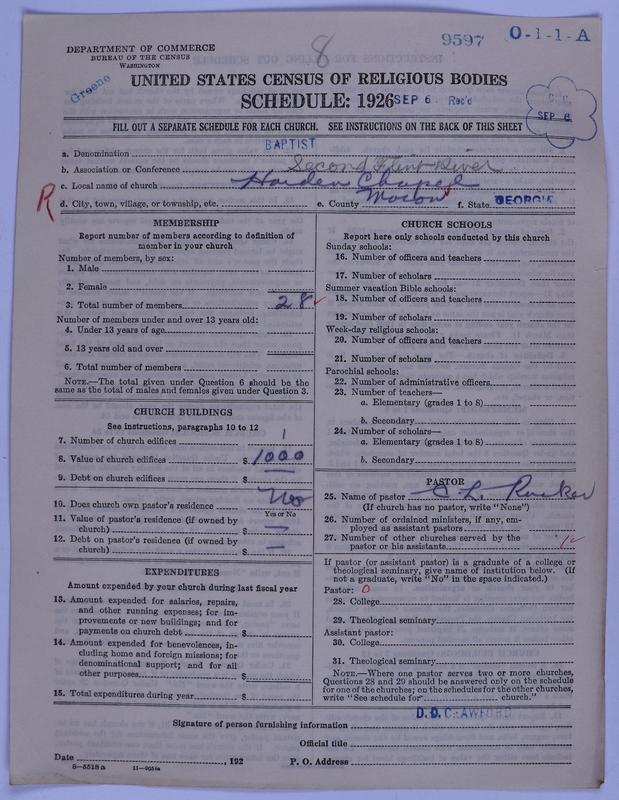 8
9597
O-1-1-A
DEPARTMENT OF COMMERCE
BUREAU OF THE CENSUS
WASHINGTON
Greene
UNITED STATES CENSUS OF RELIGIOUS BODIES
SCHEDULE: 1926 SEP 6 Rec'd
C.C.
SEP 6
FILL OUT A SEPARATE SCHEDULE FOR EACH CHURCH. SEE INSTRUCTIONS ON THE BACK OF THIS SHEET
a. Denomination BAPTIST
b. Association or Conference Second Flint River
c. Local name of church Holden Chapel
R
d. City, town, village, or township, etc. e. County Macon f. State GEORGIA
MEMBERSHIP
Report number of members according to definition of
member in your church
Number of members, by sex:
1. Male
2. Female
3. Total number of members 28
Number of members under and over 13 years old:
4. Under 13 years of age
5. 13 years old and over
6. Total number of members
NOTE.—The total given under Question 6 should be the
same as the total of males and females given under Question 3.
CHURCH BUILDINGS
See instructions, paragraphs 10 to 12
7. Number of church edifices 1
8. Value of church edifices $ 1000
9. Debt on church edifices $ —
10. Does church own pastor's residence No
Yes or No
11. Value of pastor's residence (if owned by
church) $ —
12. Debt on pastor's residence (if owned by
church) $ —
EXPENDITURES
Amount expended by your church during last fiscal year
13. Amount expended for salaries, repairs,
and other running expenses; for im-
provements or new buildings; and for
payments on church debt $
14. Amount expended for benevolences, in-
cluding home and foreign missions; for
denominational support; and for all
other purposes $
15. Total expenditures during year $
CHURCH SCHOOLS
Report here only schools conducted by this church
Sunday schools:
16. Number of officers and teachers
17. Number of scholars
Summer vacation Bible schools:
18. Number of officers and teachers
19. Number of scholars
Week-day religious schools:
20. Number of officers and teachers
21. Number of scholars
Parochial schools:
22. Number of administrative officers
23. Number of teachers—
a. Elementary (grades 1 to 8)
b. Secondary
24. Number of scholars—
a. Elementary (grades 1 to 8)
b. Secondary
PASTOR
25. Name of pastor C. L. Rucker
(If church has no pastor, write "None")
26. Number of ordained ministers, if any, em-
ployed as assistant pastors
27. Number of other churches served by the
pastor or his assistants
If pastor (or assistant pastor) is a graduate of a college or
theological seminary, give name of institution below. (If
not a graduate, write "No" in the space indicated.)
Pastor: 0
28. College
29. Theological seminary
Assistant pastor:
30. College
31. Theological seminary
NOTE.—Where one pastor serves two or more churches,
Questions 28 and 29 should be answered only on the schedule
for one of the churches; on the schedules for the other churches,
write "See schedule for church."
Signature of person furnishing information D. D. CRAWFORD
Official title
Date , 192 P. O. Address
8—5518 a 11—9051a